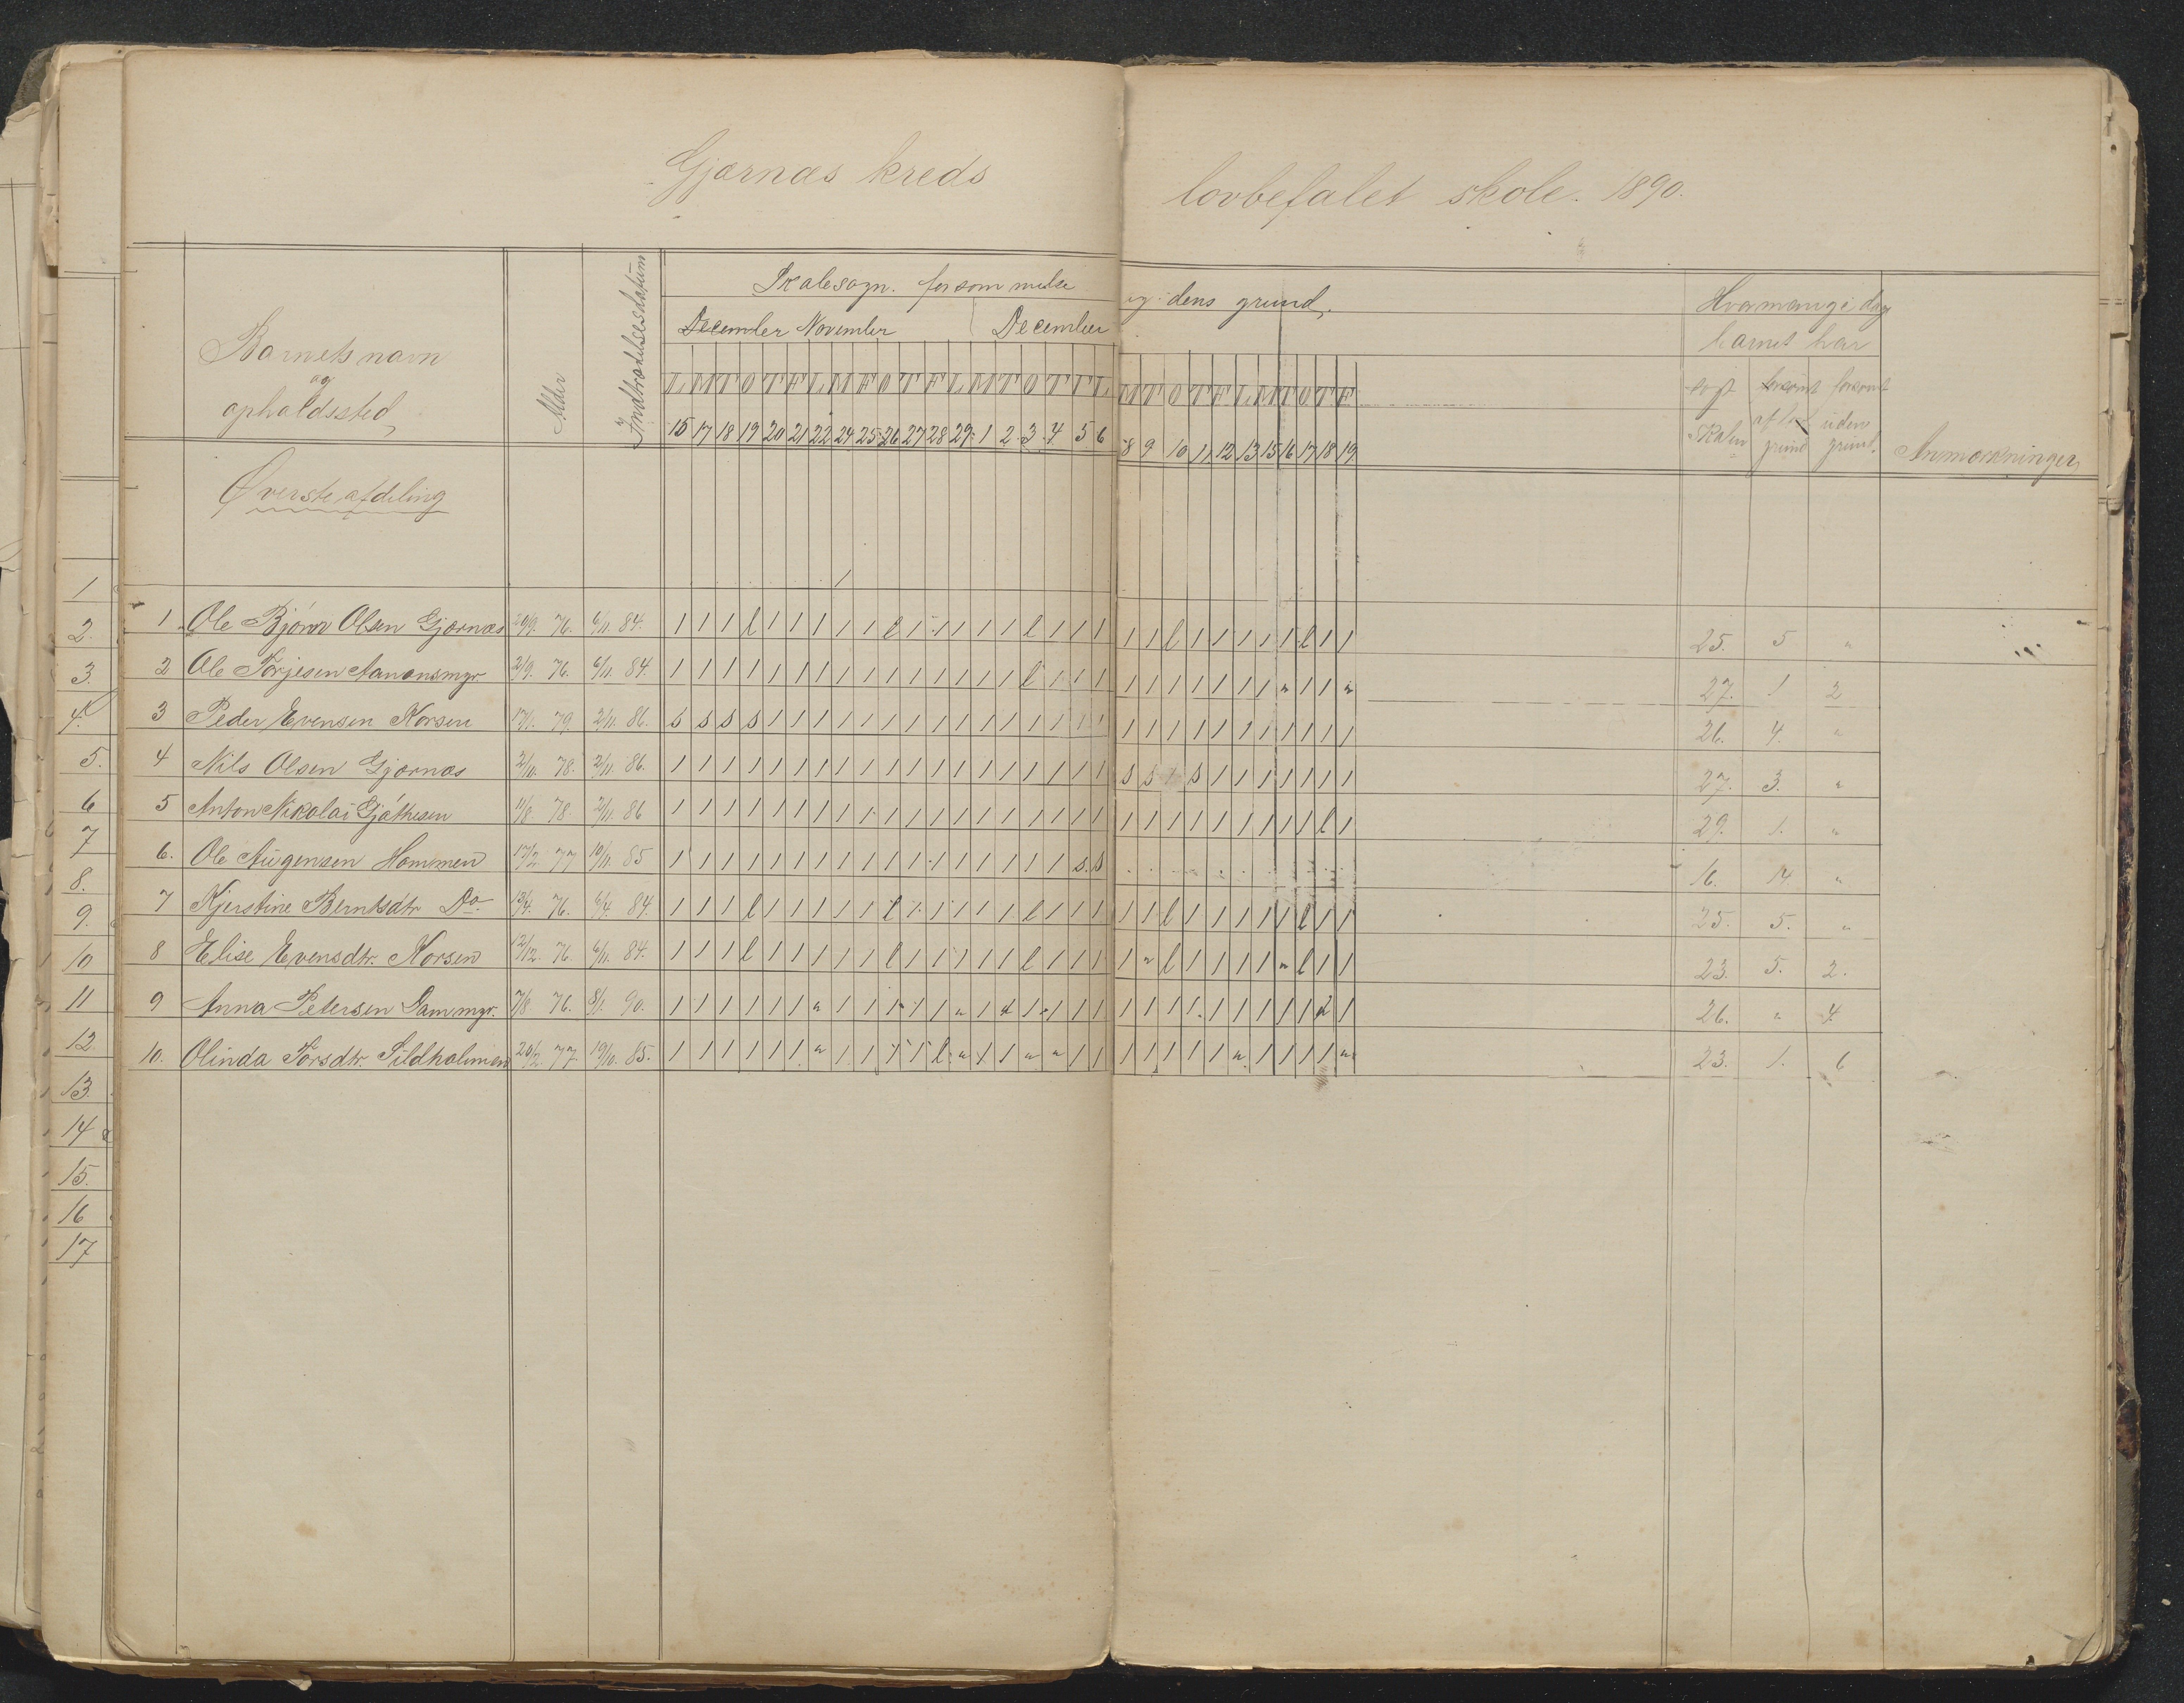 Gjærnæs kreds lovbefalet skole. 1890.
Barnets navn og opholdssted
Alder
Indtrædelsesdatum
Skolesøgn. forsømmelse og dens grund.
December November December
L M T O T F L M T O T F L M T O T F L M T O T F L M T O T F
15 17 18 19 20 21 22 24 25 26 27 28 29 1 2 3 4 5 6 8 9 10 11 12 13 15 16 17 18 19
Hvormange dag barnet har
søgt skolen
forsømt af lov. grund
forsømt uden grund.
Anmærkninger
Øverste afdeling
1 Ole Bjørn Olsen Gjærnæs 76. 6/11. 84. 1 1 1 l 1 1 1 1 1 l 1 1 1 1 1 l 1 1 1 1 1 l 1 1 1 1 1 l 1 1 25. 5 "
2 Ole Torjesen 2/9. 76. 6/11. 84. 1 1 1 1 1 1 1 1 1 1 1 1 1 1 1 l 1 1 1 1 1 1 1 1 1 1 " 1 1 " 27. 1 2
3 Peder Evensen Norsen 17/1. 79. 2/11. 86. s s s s 1 1 1 1 1 1 1 1 1 1 1 1 1 1 1 1 1 1 1 1 1 1 1 1 1 1 26. 4. "
4 Nils Olsen Gjærnæs 2/10. 78. 2/11. 86. 1 1 1 1 1 1 1 1 1 1 1 1 1 1 1 1 1 1 1 s s 1 s 1 1 1 1 1 1 1 27. 3. "
5 Anton Nikolai 11/8. 78. 2/11. 86 1 1 1 1 1 1 1 1 1 1 1 1 1 1 1 1 1 1 1 1 1 1 1 1 1 1 1 1 l 1 29. 1. "
6. Ole Augensen Hommen 17/2. 77 10/11. 85 1 1 1 1 1 1 1 1 1 1 1 1 1 1 1 1 1 s. s 16. 14 "
7 Kjerstine Berntsdtr Do. 13/4. 76. 84. 1 1 1 l 1 1 1 1 1 l 1 1 1 1 1 l 1 1 1 1 1 l 1 1 1 1 1 l 1 1 25. 5. "
8 Elise Evensdtr. Norsen 12/12. 76. 6/11. 84. 1 1 1 l 1 1 1 1 1 l 1 1 1 1 1 l 1 1 1 1 " l 1 1 1 1 " l 1 1 23. 5. 2.
9 Anna Petersen 7/8. 76. 8/1. 90. 26. " 4.
10. Olinda Torsdtr. Sildholmen 20/2. 77. 19/10. 85. 23. 1. 6
1
2.
3.
4.
5.
6
7
8.
9.
10
11
12.
13.
14
15.
16
17